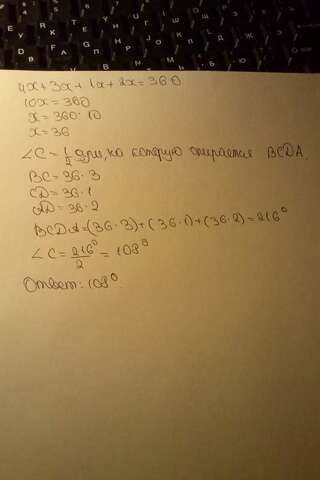 4x+3x+1x+2x=360
10x=360
x=360:10
x=36
∠C=1/2 дуги, на которую опирается BCDA.
BC=36·3
CD=36·1
AD=36·2
BCDA=(36·3)+(36·1)+(36·2)=216°
∠C=216°/2=108°
Ответ: 108°.